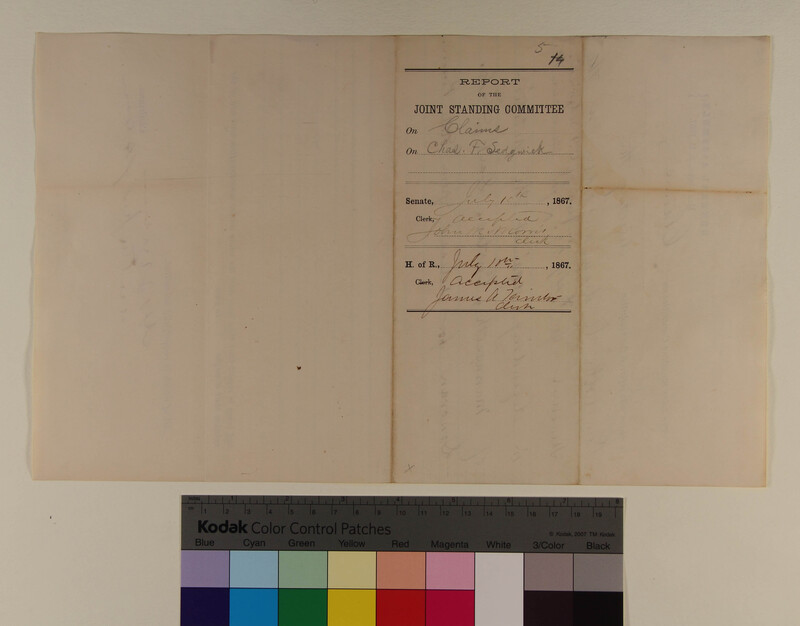 5
14
REPORT
OF THE
JOINT STANDING COMMITTEE
On Claims
On Chas. F. Sedgwick
Senate, July 10th, 1867.
Clerk, Accepted
John
Clerk
H. of R., July 10th, 1867.
Clerk, Accepted
James A
Clerk
1 2 3 4 5 6 7 8
1 2 3 4 5 6 7 8 9 10 11 12 13 14 15 16 17 18 19
Kodak Color Control Patches
© Kodak, 2007 TM: Kodak
Blue Cyan Green Yellow Red Magenta White 3/Color Black